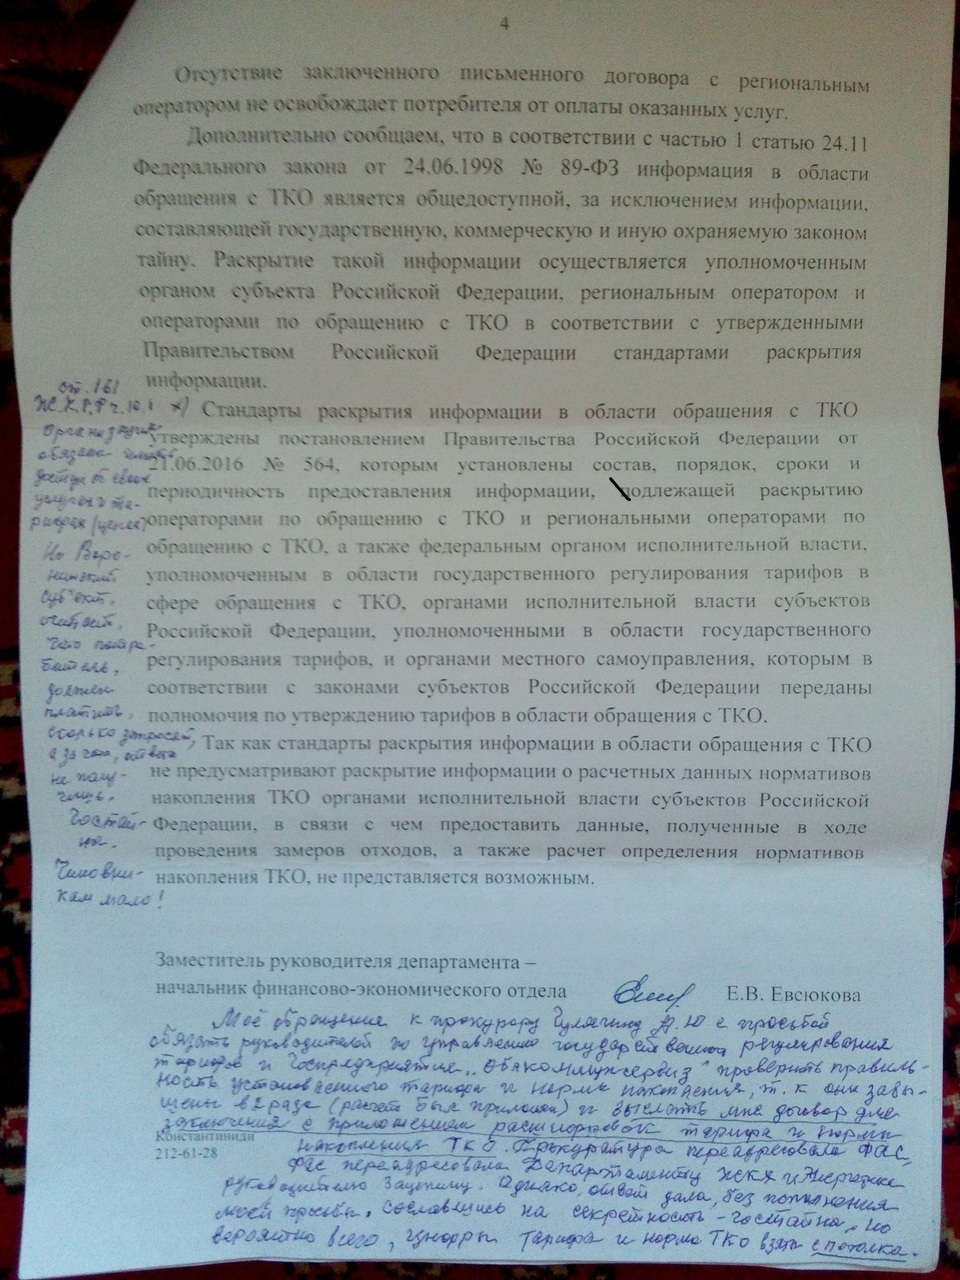 4
Отсутствие заключенного письменного договора с региональным
оператором не освобождает потребителя от оплаты оказанных услуг.
Дополнительно сообщаем, что в соответствии с частью 1 статью 24.11
Федерального закона от 24.06.1998 № 89-ФЗ информация в области
обращения с ТКО является общедоступной, за исключением информации,
составляющей государственную, коммерческую и иную охраняемую законом
тайну. Раскрытие такой информации осуществляется уполномоченным
органом субъекта Российской Федерации, региональным оператором и
операторами по обращению с ТКО в соответствии с утвержденными
Правительством Российской Федерации стандартами раскрытия
информации.
Стандарты раскрытия информации в области обращения с ТКО
утверждены постановлением Правительства Российской Федерации от
21.06.2016 № 564, которым установлены состав, порядок, сроки и
периодичность предоставления информации, подлежащей раскрытию
операторами по обращению с ТКО и региональными операторами по
обращению с ТКО, а также федеральным органом исполнительной власти,
уполномоченным в области государственного регулирования тарифов в
сфере обращения с ТКО, органами исполнительной власти субъектов
Российской Федерации, уполномоченными в области государственного
регулирования тарифов, и органами местного самоуправления, которым в
соответствии с законами субъектов Российской Федерации переданы
полномочия по утверждению тарифов в области обращения с ТКО.
Так как стандарты раскрытия информации в области обращения с ТКО
не предусматривают раскрытие информации о расчетных данных нормативов
накопления ТКО органами исполнительной власти субъектов Российской
Федерации, в связи с чем предоставить данные, полученные в ходе
проведения замеров отходов, а также расчет определения нормативов
накопления ТКО, не представляется возможным.
ст. 161
Ж.К.Р.Ф ч.10.1
Организация
обязана
доступ о своих
услугах и та-
рифах (ценах)
Но Воро-
нежский
субъект,
считает,
что потре-
битель,
должен
платить,
сколько запросят,
а за что, ответа
не полу-
чишь.
Гостай-
на.
Чиновни-
кам мало!
Заместитель руководителя департамента –
начальник финансово-экономического отдела
Е.В. Евсюкова
Моё обращение к прокурору А.Ю с просьбой
обязать руководителей по управлению государственного регулирования
тарифов и Госпредприятия проверить правиль-
ность установленного тарифа и норм накопления, т.к они завы-
шены в 2 раза (расчёт был приложен) и выслать мне договор для
заключения с приложением расшифровок тарифа и нормы
накопления ТКО. Прокуратура переадресовала ФАС,
ФАС переадресовала Департаменту ЖКХ и Энергетики
руководителю Зацепину. Однако, ответ дала, без исполнения
моей просьбы, сославшись на секретность – гостайна, но
вероятно всего, цифры тарифа и норма ТКО взяты с потолка.
Константиниди
212-61-28